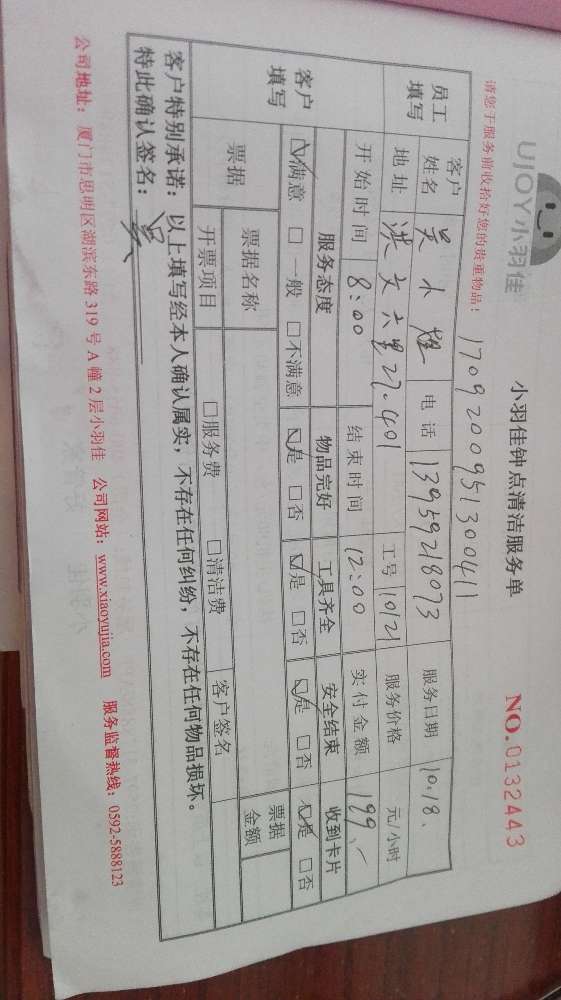 UJOY小羽佳
小羽佳钟点清洁服务单
NO.0132443
请您于服务前收拾好您的贵重物品！
1709200951300411
员工填写 客户姓名 吴小 电话 13959218073 服务日期 10.18.
地址 洪文六里27.401 工号 10121 服务价格 元/小时
开始时间 8:00 结束时间 12:00 实付金额 199.-
客户填写 服务态度 物品完好 工具齐全 安全结束 收到卡片
☑满意 □一般 □不满意 ☑是 □否 ☑是 □否 ☑是 □否 ☑是 □否
票据 票据名称 票据金额
开票项目 □服务费 □清洁费 客户签名
客户特别承诺：以上填写经本人确认属实，不存在任何纠纷，不存在任何物品损坏。
特此确认签名：吴
公司地址：厦门市思明区湖滨东路 319 号 A 幢 2 层小羽佳 公司网站：www.xiaoyujia.com 服务监督热线：0592-5888123